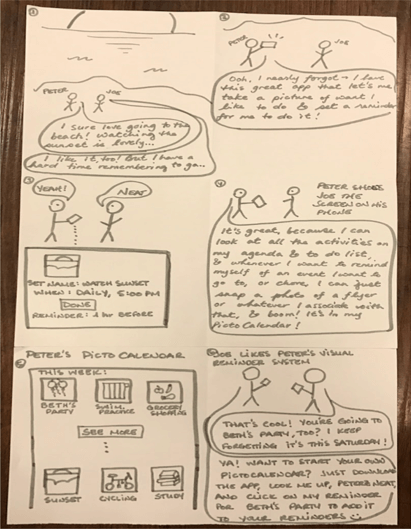 1
PETER
JOE
I sure love going to the
beach! Watching the
sunset is lovely...
I like it, too! But I have a
hard time remembering to go...
2
PETER
JOE
Ooh, I nearly forgot → I have
this great app that let's me
take a picture of want I
like to do & set a reminder
for me to do it!
3
YEAH!
NEAT
SET NAME: WATCH SUNSET
WHEN: DAILY, 5:00 PM
DONE
REMINDER: 1 hr BEFORE
4
PETER SHOWS
JOE THE
SCREEN ON HIS
PHONE
It's great, because I can
look at all the activities on
my agenda & to do list,
& whenever I want to remind
myself of an event I want to
go to, or chore, I can just
snap a photo of a flyer
or whatever I associate with
that, & boom! It's in my
Picto Calendar!
5
PETER'S PICTO CALENDAR
THIS WEEK:
BETH'S
PARTY
SWIM
PRACTICE
GROCERY
SHOPPING
SEE MORE
SUNSET
CYCLING
STUDY
6
JOE LIKES PETER'S VISUAL
REMINDER SYSTEM
THAT'S COOL! YOU'RE GOING TO
BETH'S PARTY, TOO? I KEEP
FORGETTING IT'S THIS SATURDAY!
YA! WANT TO START YOUR OWN
PICTOCALENDAR? JUST DOWNLOAD
THE APP, LOOK ME UP, PETER NEAT,
AND CLICK ON MY REMINDER
FOR BETH'S PARTY TO ADD IT
TO YOUR REMINDERS